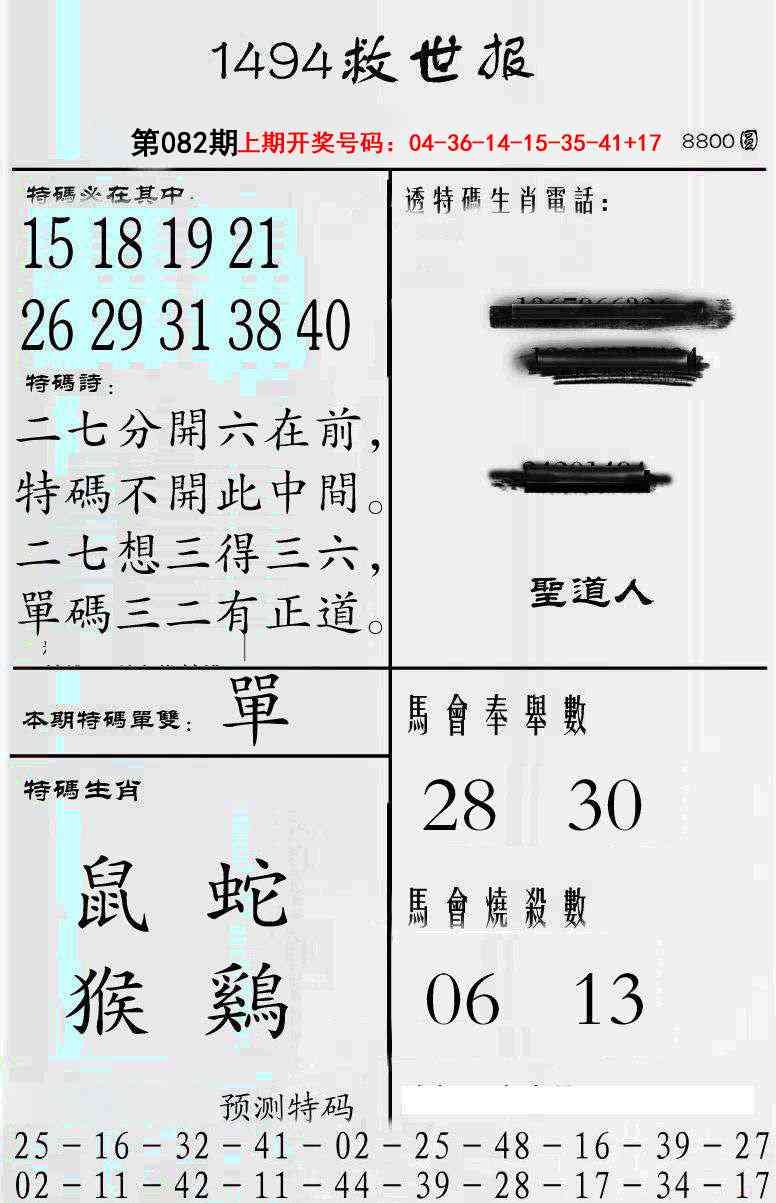 1494救世报
第082期上期开奖号码：04-36-14-15-35-41+17 8800圓
特碼必在其中：
15 18 19 21
26 29 31 38 40
特碼詩：
二七分開六在前，
特碼不開此中間。
二七想三得三六，
單碼三二有正道。
本期特碼單雙：單
特碼生肖
鼠 蛇
猴 鷄
透特碼生肖電話：
聖道人
馬會奉舉數
28 30
馬會燒殺數
06 13
预测特码
25－16－32－41－02－25－48－16－39－27
02－11－42－11－44－39－28－17－34－17